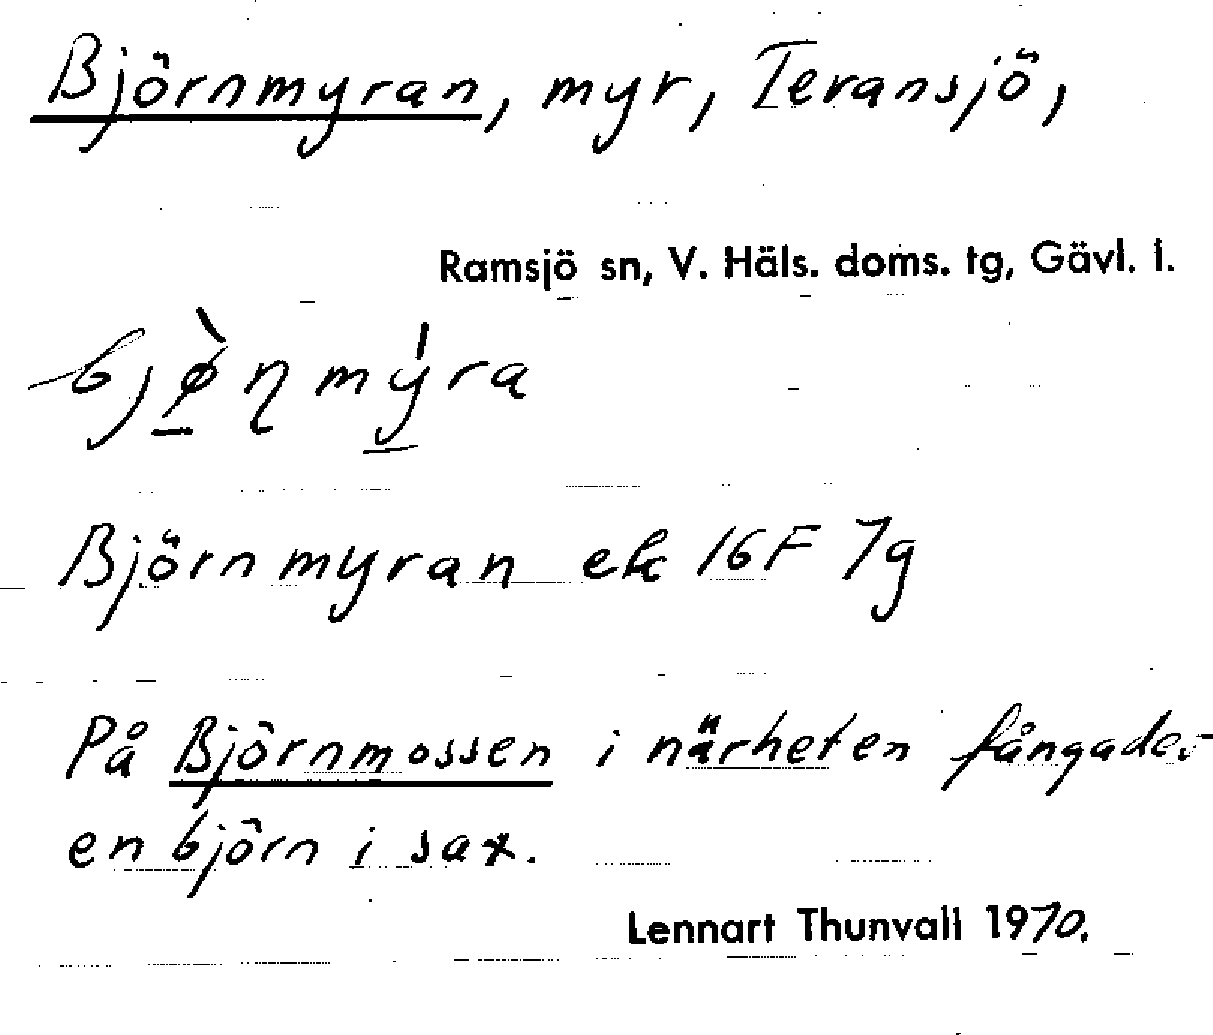 Björnmyran, myr, Teransjö,
Ramsjö sn, V. Häls. doms. tg, Gävl. l.
bjø̠̀ɳmý̠ra
Björnmyran ek 16F 7g
På Björnmossen i närheten fångades
en björn i sax.
Lennart Thunvall 1970.